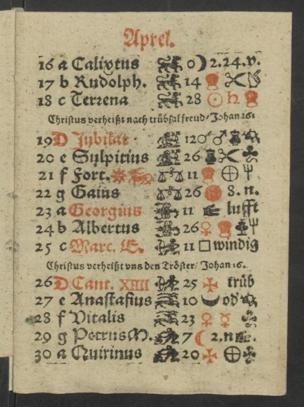 Aprel.
16 a Calixtus 0 2.24.v.
17 b Rudolph. 14
18 c Terzena 28
Christus verheißt nach trübsal freud/Johan 16.
19 D Jubilat 12
20 e Sulpitius 26
21 f Fort. 11
22 g Gaius 26 8.n.
23 a Georgius 11 lufft
24 b Albertus 26
25 c Marc. E. 11 windig
Christus verheißt vns den Tröster/Johan 16.
26 D Cant. XIIII 25 trüb
27 e Anastasius 10
28 f Vitalis 23
29 g Petrus M. 7 2.n.
30 a Quirinus 20